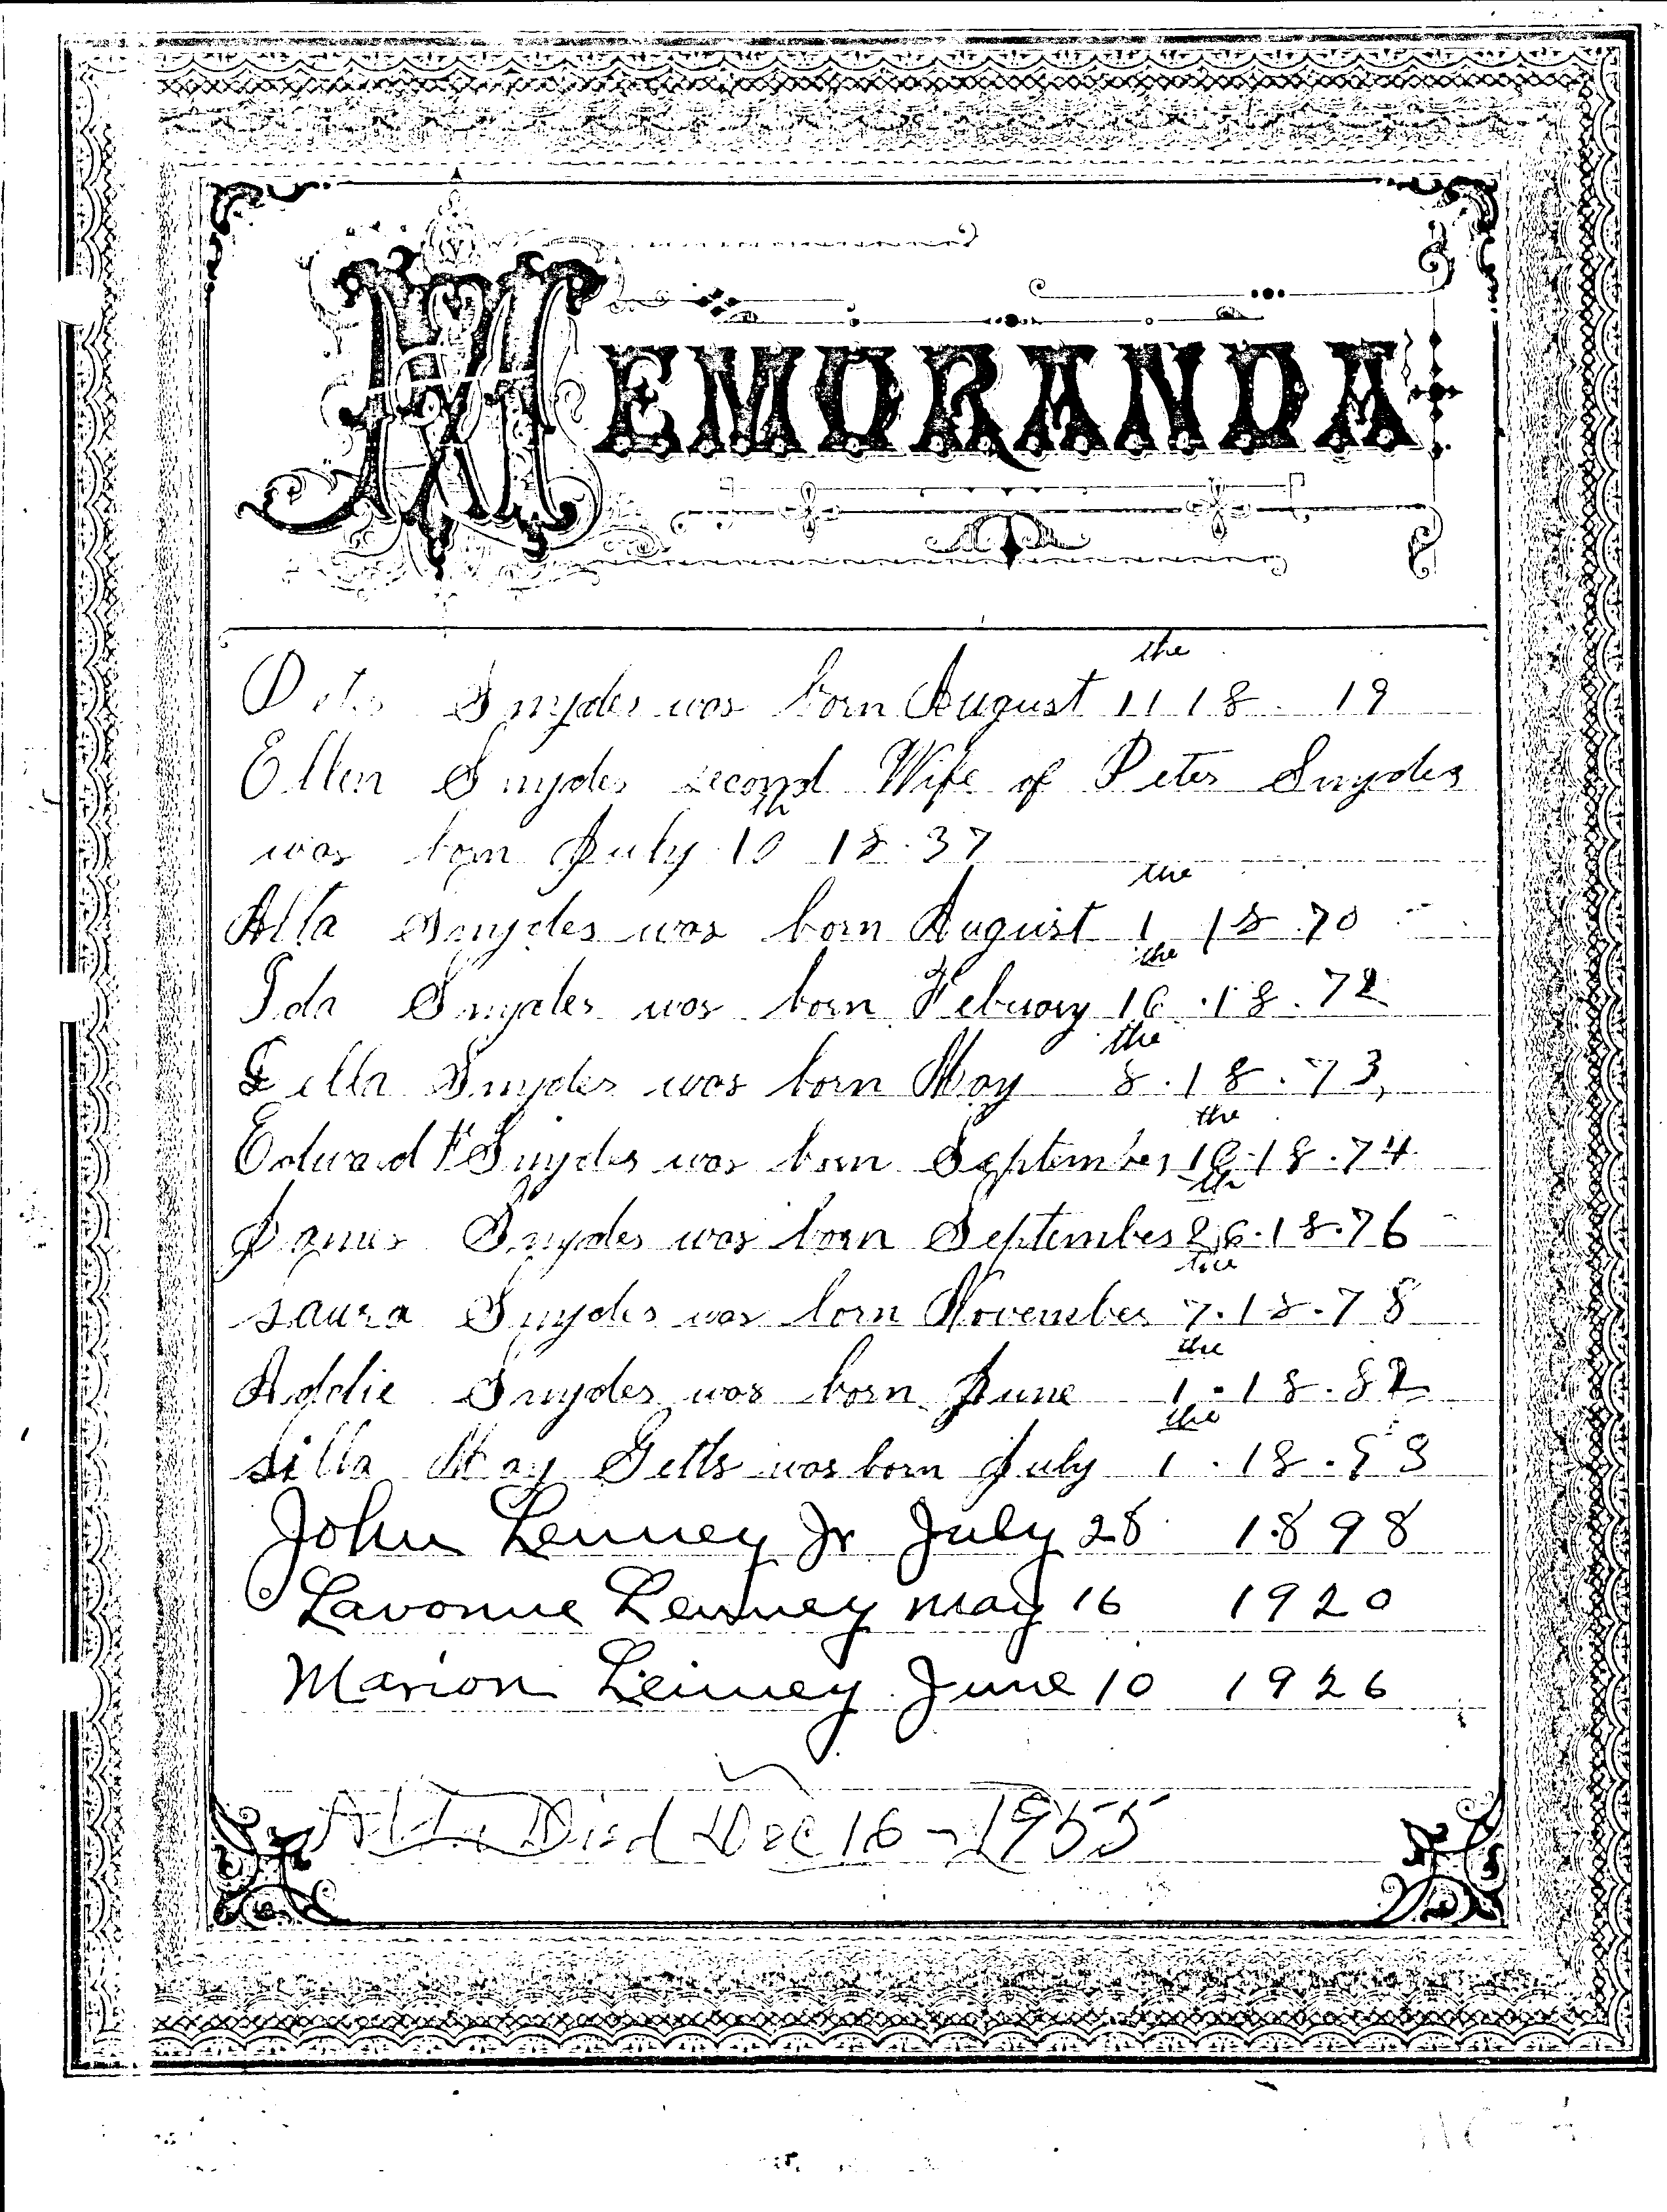 MEMORANDA
the
Peter Snyder was born August 11 18. 19
Ellen Snyder second Wife of Peter Snyder
th
was born July 10 18.37
the
Alta Snyder was born August 1 18.70
the
Ida Snyder was born Februory 16.18.72
the
Snyder was born May 8.18.73,
the
Edward F Snyder was born September 18.74
th
James Snyder was born September 26.18.76
the
Laura Snyder was born November 7.18.78
the
Addie Snyder was born June 1.18.82
the
Lilla May Getts was born July 1.18.93
John Lenney Jr July 28 1898
Lavonne Lenney May 16 1920
Marion Lenney June 10 1926
Alta Died Dec 16-1955